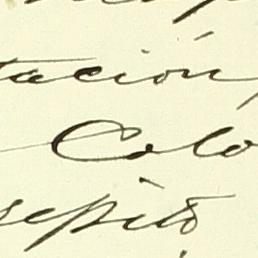 tación,
Colo
sepitó